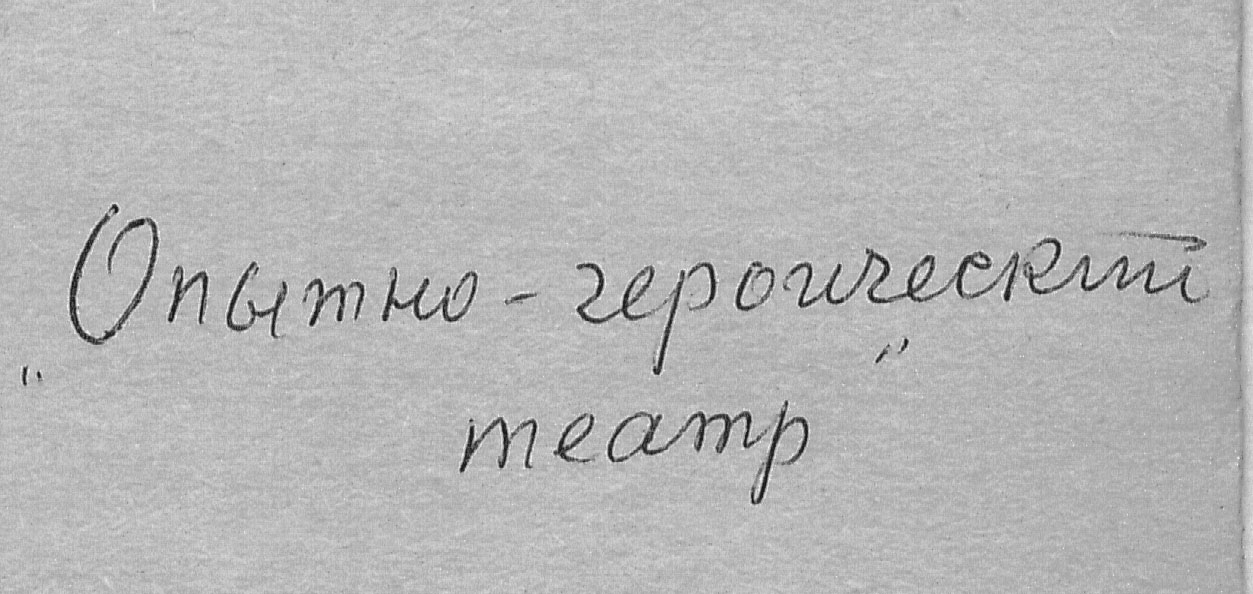 „Опытно-героический
театр"